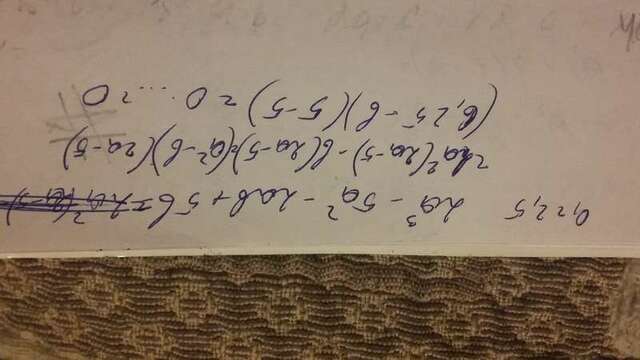 a = 2,5 2a³ - 5a² - 2ab + 5b =
= a²(2a-5) - b(2a-5) = (a²-b)(2a-5)
(6,25 - b)(5-5) = 0 .... = 0